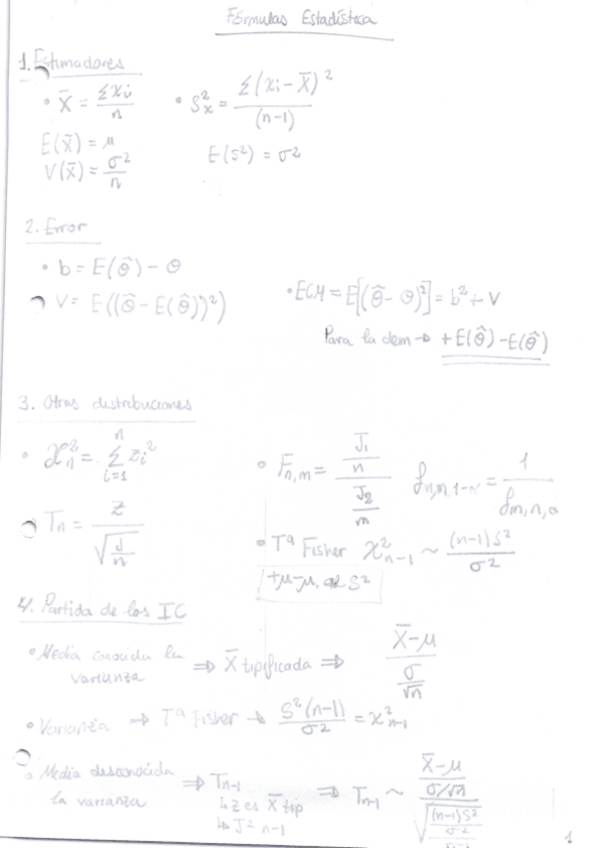 Fórmulas Estadística
1. Estimadores
• X̄ = Σxi / n
• S²x = Σ(xi - X̄)² / (n-1)
E(x̄) = μ
E(s²) = σ²
V(x̄) = σ² / n
2. Error
• b = E(θ̂) - θ
• V = E((θ̂ - E(θ̂))²)
• ECM = E[(θ̂ - θ)²] = b² + V
Para la dem → +E(θ̂) - E(θ̂)
3. Otras distribuciones
• χ²n = Σ(i=1, n) zi²
• Fn,m = (J1/n) / (J2/m)
fn,m,1-α = 1 / fm,n,α
• Tn = z / √(J/n)
• Tª Fisher χ²n-1 ~ (n-1)S² / σ²
+μ-μ. al S²
4. Partida de los IC
• Media conocida la varianza ⇒ X̄ tipificada ⇒ (X̄-μ) / (σ/√n)
• Varianza ⇒ Tª Fisher → S²(n-1) / σ² = χ²n-1
• Media desconocida la varianza ⇒ Tn-1
↳ z es X̄ tip
↳ J² n-1
⇒ Tn-1 ~ ((X̄-μ) / (σ/√n)) / √(((n-1)S² / σ²) / n-1)
1